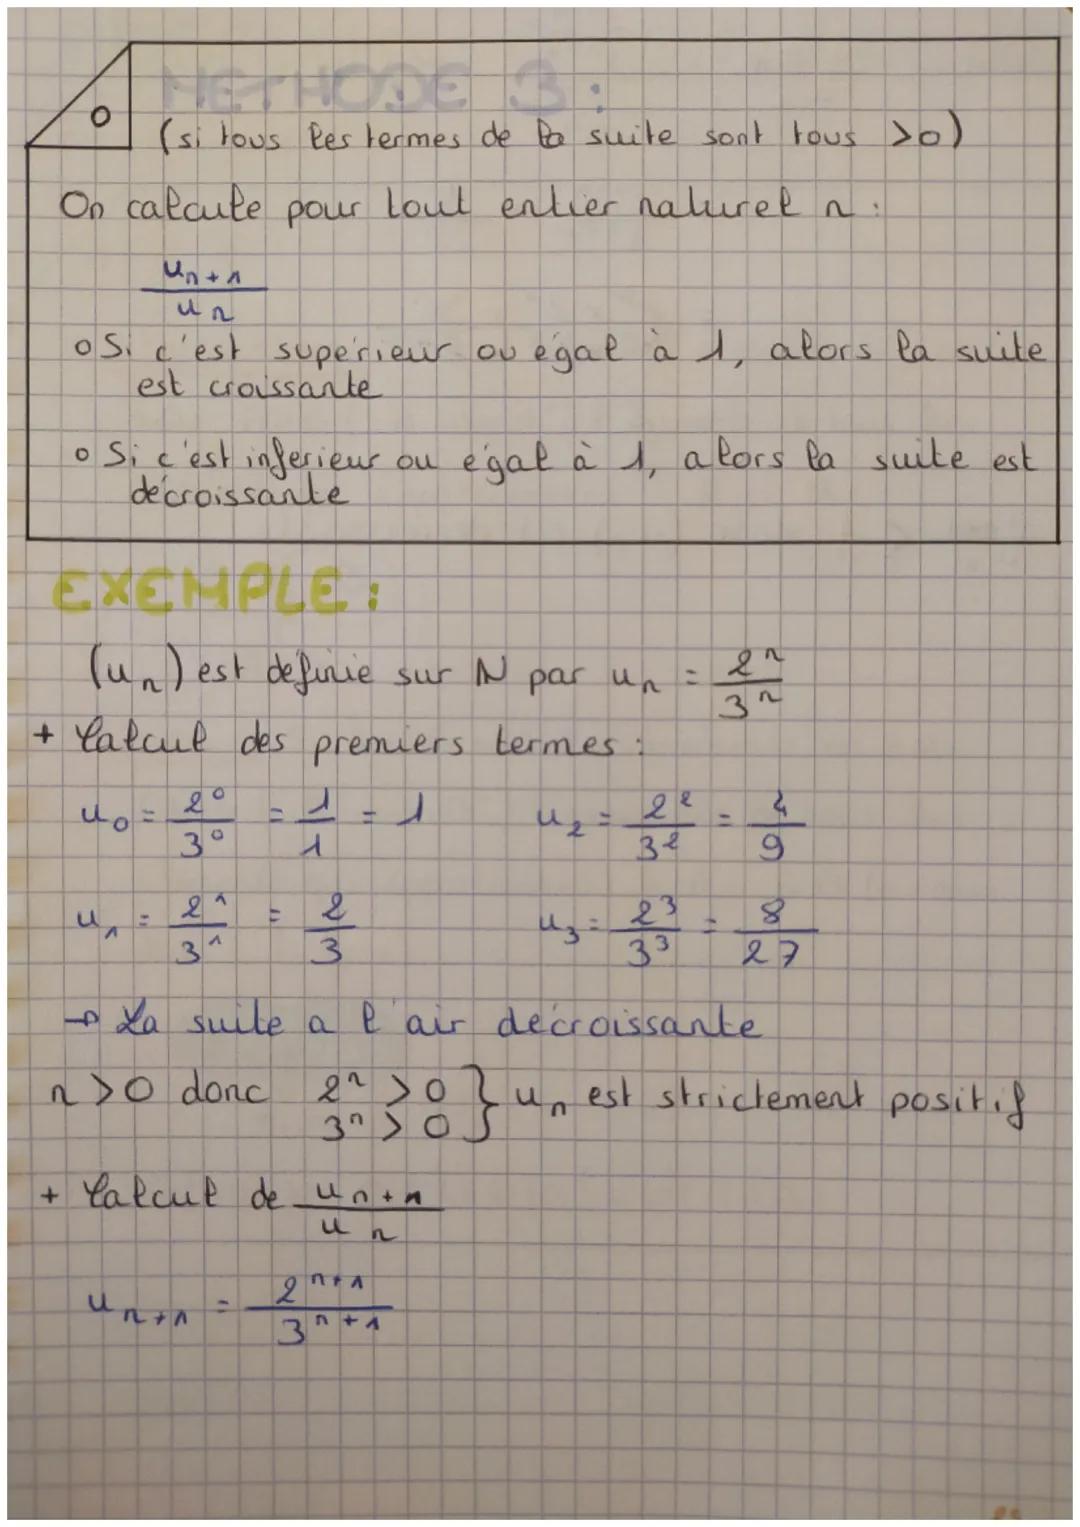 METHODE 3 :
(si tous les termes de la suite sont tous >0)
On calcule pour tout entier naturel n :
u_{n+1} / u_n
o Si c'est supérieur ou égal à 1, alors la suite
est croissante
o Si c'est inferieur ou égal à 1, alors la suite est
décroissante
EXEMPLE :
(u_n) est définie sur N par u_n = 2^n / 3^n
+ Calcul des premiers termes :
u_0 = 2^0 / 3^0 = 1/1 = 1 u_2 = 2^2 / 3^2 = 4/9
u_1 = 2^1 / 3^1 = 2/3 u_3 = 2^3 / 3^3 = 8/27
→ La suite a l'air décroissante
n >0 donc 2^n >0 } u_n est strictement positif
3^n > 0
+ Calcul de u_{n+1} / u_n
u_{n+1} = 2^{n+1} / 3^{n+1}